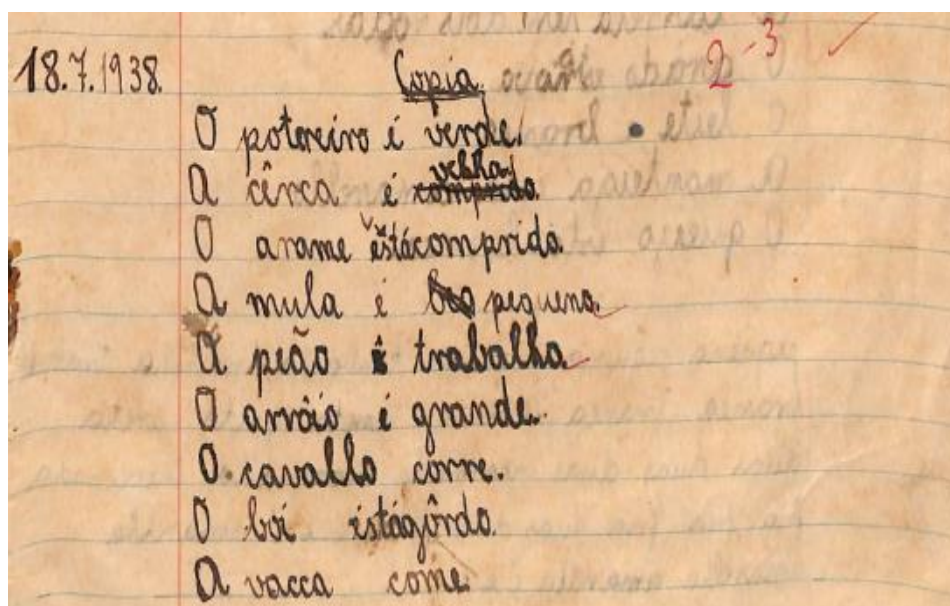 18.7.1938. Copia. 2-3
O potereiro é verde.
A cêrca é velha comprido.
O arame está comprido.
A mula é pequena.
A peão é trabalha
O arrôio é grande.
O cavallo corre.
O boi está gôrdo.
A vacca come